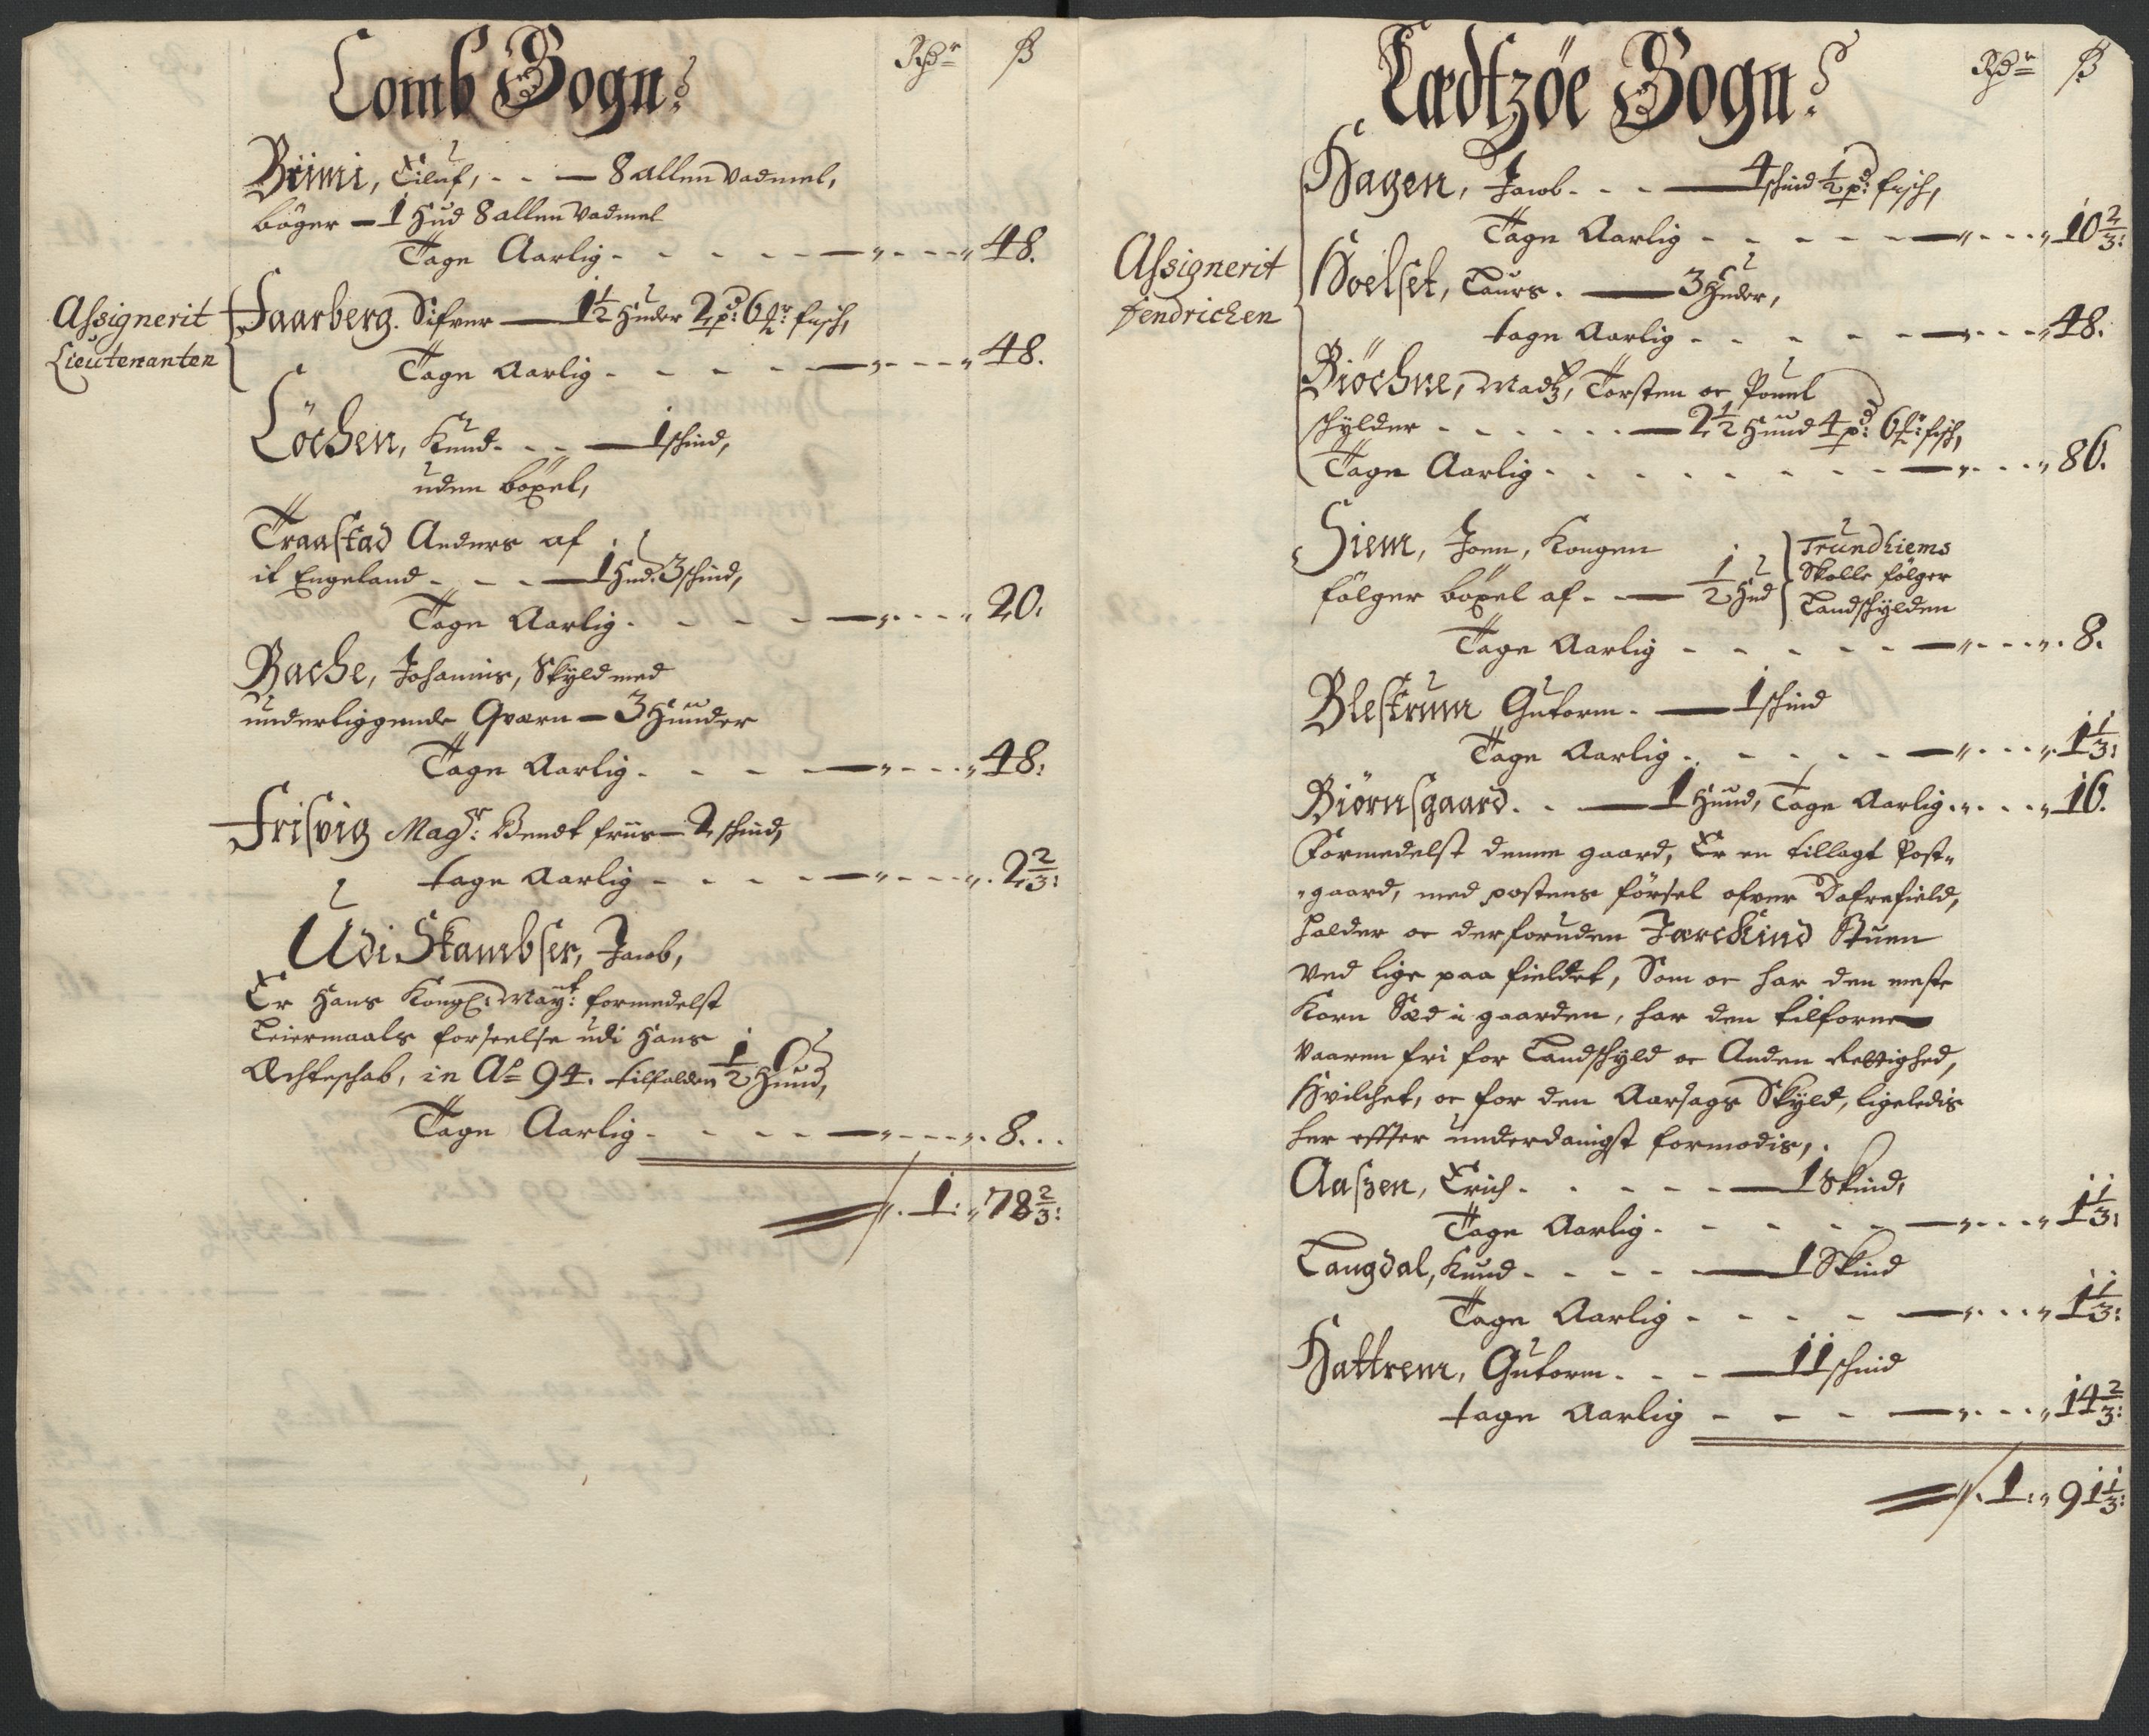 Lomb Sogn:
Rdr ß
Brimi, Eiluf, - - — 8 allen vadmel,
böger — 1 Hud 8 allen vadmel
Tage Aarlig - - - - — „ - - - „ 48.
Assignerit
Lieutenanten
Faarberg. Sifver — 1½ Huder 2 pd: 6 fisch,
Tage Aarlig - - - - — „ - - - „ 48.
Löchen, Knud - - - — 1 schind,
uden böxel,
Traastad Anders af
it Engeland - - - — 1 Hud. 3 schind,
Tage Aarlig - - - - — „ - - - „ 20.
Bache, Johannis, Skyld med
underliggende Qværn — 3 Huuder
Tage Aarlig - - - - — „ - - - „ 48:
Frisvig Magr: Bendt friis — 2 schind,
tage Aarlig - - - - — „ - - - „ 2⅔:
Udi Skambser, Jacob,
Er Hans Kongl: Mayt: formedelst
Leiermaals forseelse udi Hans
Ächteschab, in Ao 94. tilfalden ½ Huud,
Tage Aarlig - - - - — „ - - - „ 8...
1: „ 78⅔:
Lædtzöe Sogn:
Rdr ß
Assignerit
Fendricken
Hagen, Jacob - - — 4 schind ½ pd: fisch,
Tage Aarlig - - - - — „ - - - „ 10⅔:
Hoelset, Laurs. — 3 Huder,
tage Aarlig - - - - — „ - - - „ 48.
Biöchne, Madtz, Torsten oc Pouel
schylder - - - - - — 2½ Huud 4 pd: 6 fisch,
Tage Aarlig - - - - — „ - - - „ 86.
Siem, Joen, Kongen
fölger böxel af - — ½ Hud
Trundhiems
Skolle fölger
Landschylden
Tage Aarlig - - - - — „ - - - „ 8.
Blestrum Gutorm - — 1 schind
Tage Aarlig - - - - — „ - - - „ 1⅓:
Biörnsgaard - - — 1 Huud, Tage Aarlig „ - - - „ 16.
Formedelst denne gaard, Er en tillagt Post„
„gaard, med postens försel ofver Dofrefield,
holder oc derforuden Jærckind Stuen
ved lige paa fieldet, Som oc har den meste
Korn Sæd i gaarden, har den tilforne
vaaren fri for Landschyld oc Anden Rettighed,
Hvilchet, oc for den Aarsags Skyld, ligeledis
her effter underdanigst formodis,
Aaszen, Erich - - - - — 1 Skind,
Tage Aarlig - - - - — „ - - - „ 1⅓:
Langdal, Knud - - - - — 1 Skind
Tage Aarlig - - - - — „ - - - „ 1⅓:
Hattrem, Gutorm - - - — 11 schind
tage Aarlig - - - — „ - - - „ 14⅔:
1: „ 91⅓: